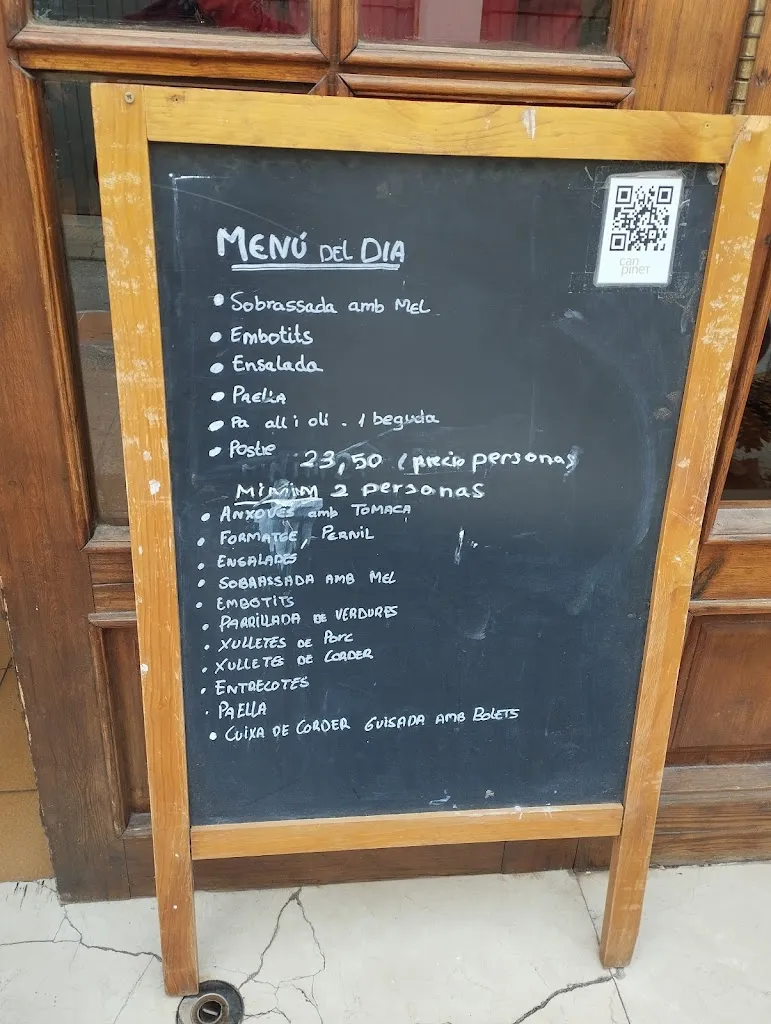 can
pineT
MENÚ DEL DIA
• Sobrassada amb MEL
• Embotits
• Ensalada
• PAELLA
• Pa all i oli . 1 beguda
• Postre 23,50 (precio personas)
MINIM 2 personas
• ANXOVES amb TOMACA
• FORMATGE, PERNIL
• ENSALADES
• SOBRASSADA AMB MEL
• EMBOTITS
• PARRILLADA DE VERDURES
• XULLETES DE PORC
• XULLETES DE CORDER
• ENTRECOTES
• PAELLA
• CUIXA DE CORDER GUISADA AMB BOLETS